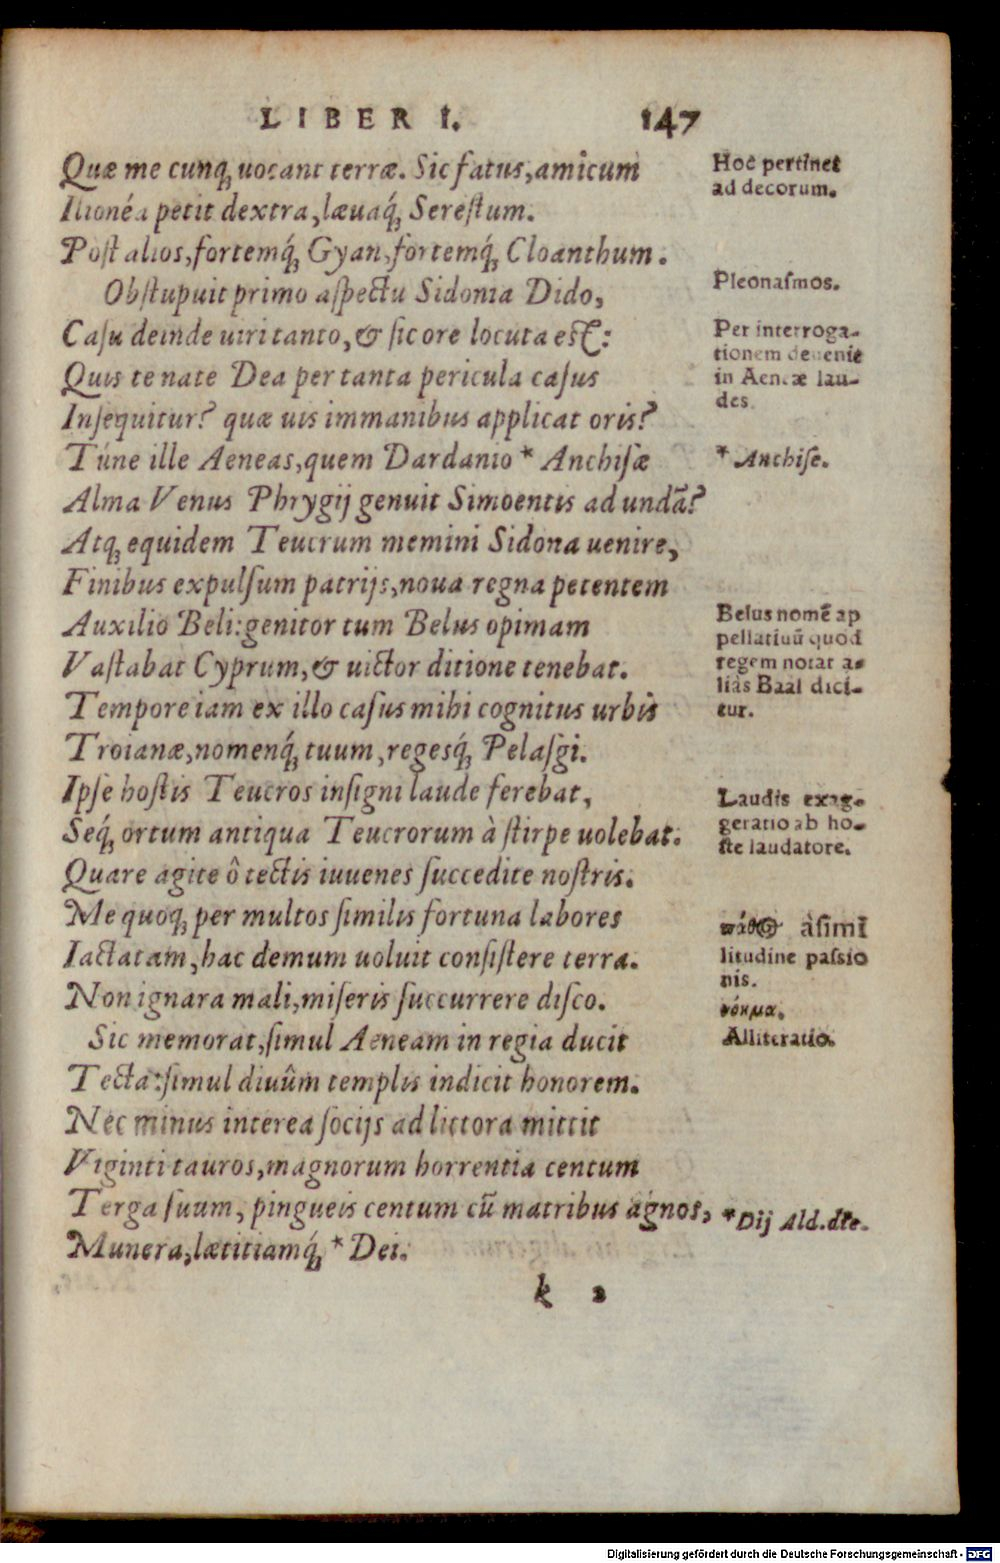 LIBER I. 147
Quæ me cunq; uocant terræ. Sic fatus, amicum
Ilionéa petit dextra, læuaq́; Serestum.
Post alios, fortemq́; Gyan, fortemq́; Cloanthum.
Obstupuit primo aspectu Sidonia Dido,
Casu deinde uiri tanto, & sic ore locuta est:
Quis te nate Dea per tanta pericula casus
Insequitur? quæ uis immanibus applicat oris?
Túne ille Aeneas, quem Dardanio * Anchisæ
Alma Venus Phrygij genuit Simoentis ad undā?
Atq; equidem Teucrum memini Sidona uenire,
Finibus expulsum patrijs, noua regna petentem
Auxilio Beli: genitor tum Belus opimam
Vastabat Cyprum, & uictor ditione tenebat.
Tempore iam ex illo casus mihi cognitus urbis
Troianæ, nomenq́; tuum, regesq́; Pelasgi.
Ipse hostis Teucros insigni laude ferebat,
Seq́; ortum antiqua Teucrorum à stirpe uolebat.
Quare agite ô tectis iuuenes succedite nostris.
Me quoq; per multos similis fortuna labores
Iactatam, hac demum uoluit consistere terra.
Non ignara mali, miseris succurrere disco.
Sic memorat, simul Aeneam in regia ducit
Tecta: simul diuûm templis indicit honorem.
Nec minus interea socijs ad littora mittit
Viginti tauros, magnorum horrentia centum
Terga suum, pingueis centum cū matribus agnos,
Munera, lætitiamq́; * Dei.
k 2
Hoc pertinet
ad decorum.
Pleonasmos.
Per interroga-
tionem deuenit
in Aeneæ lau-
des.
* Anchise.
Belus nomē ap
pellatiuū quod
regem notat a-
liàs Baal dici-
tur.
Laudis exag-
geratio ab ho-
ste laudatore.
πάθος à simi
litudine passio
nis.
νόημα.
Alliteratio.
* Dij Ald. dte.
Digitalisierung gefördert durch die Deutsche Forschungsgemeinschaft - DFG